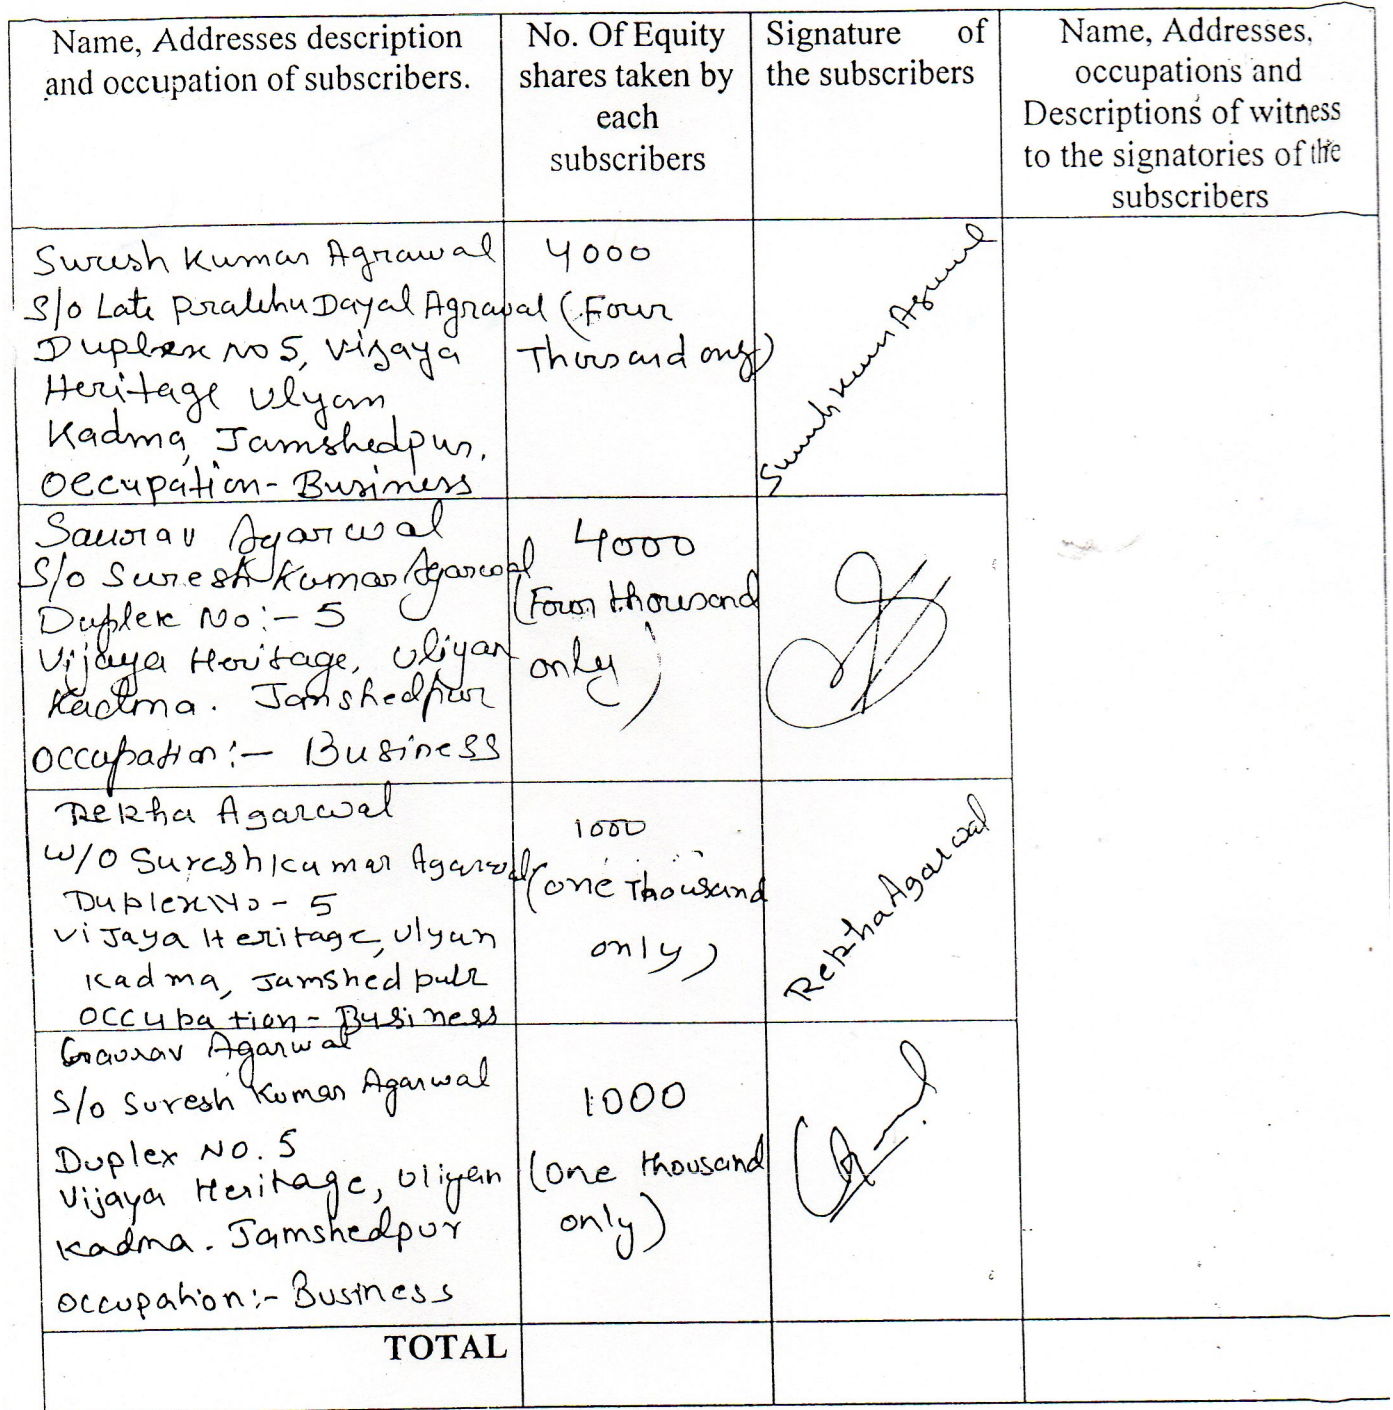 Name, Addresses description
and occupation of subscribers.
No. Of Equity
shares taken by
each
subscribers
Signature of
the subscribers
Name, Addresses,
occupations and
Descriptions of witness
to the signatories of the
subscribers
Suresh Kumar Agrawal
S/o Late Prabhu Dayal Agrawal
Duplex No 5, Vijaya
Heritage Ulyan
Kadma, Jamshedpur,
Occupation - Business
4000
(Four
Thousand only)
Suresh Kumar Agrawal
Saurav Agarwal
S/o Suresh Kumar Agarwal
Duplex No:- 5
Vijaya Heritage, Uliyan
Kadma. Jamshedpur
Occupation:- Business
4000
(Four thousand
only)
Rekha Agarwal
W/O Suresh Kumar Agarwal
Duplex No - 5
Vijaya Heritage, Ulyan
Kadma, Jamshedpur
Occupation - Business
1000
(One Thousand
only)
Rekha Agarwal
Gaurav Agarwal
S/o Suresh Kumar Agarwal
Duplex No. 5
Vijaya Heritage, Uliyan
Kadma. Jamshedpur
Occupation:- Business
1000
(One thousand
only)
TOTAL